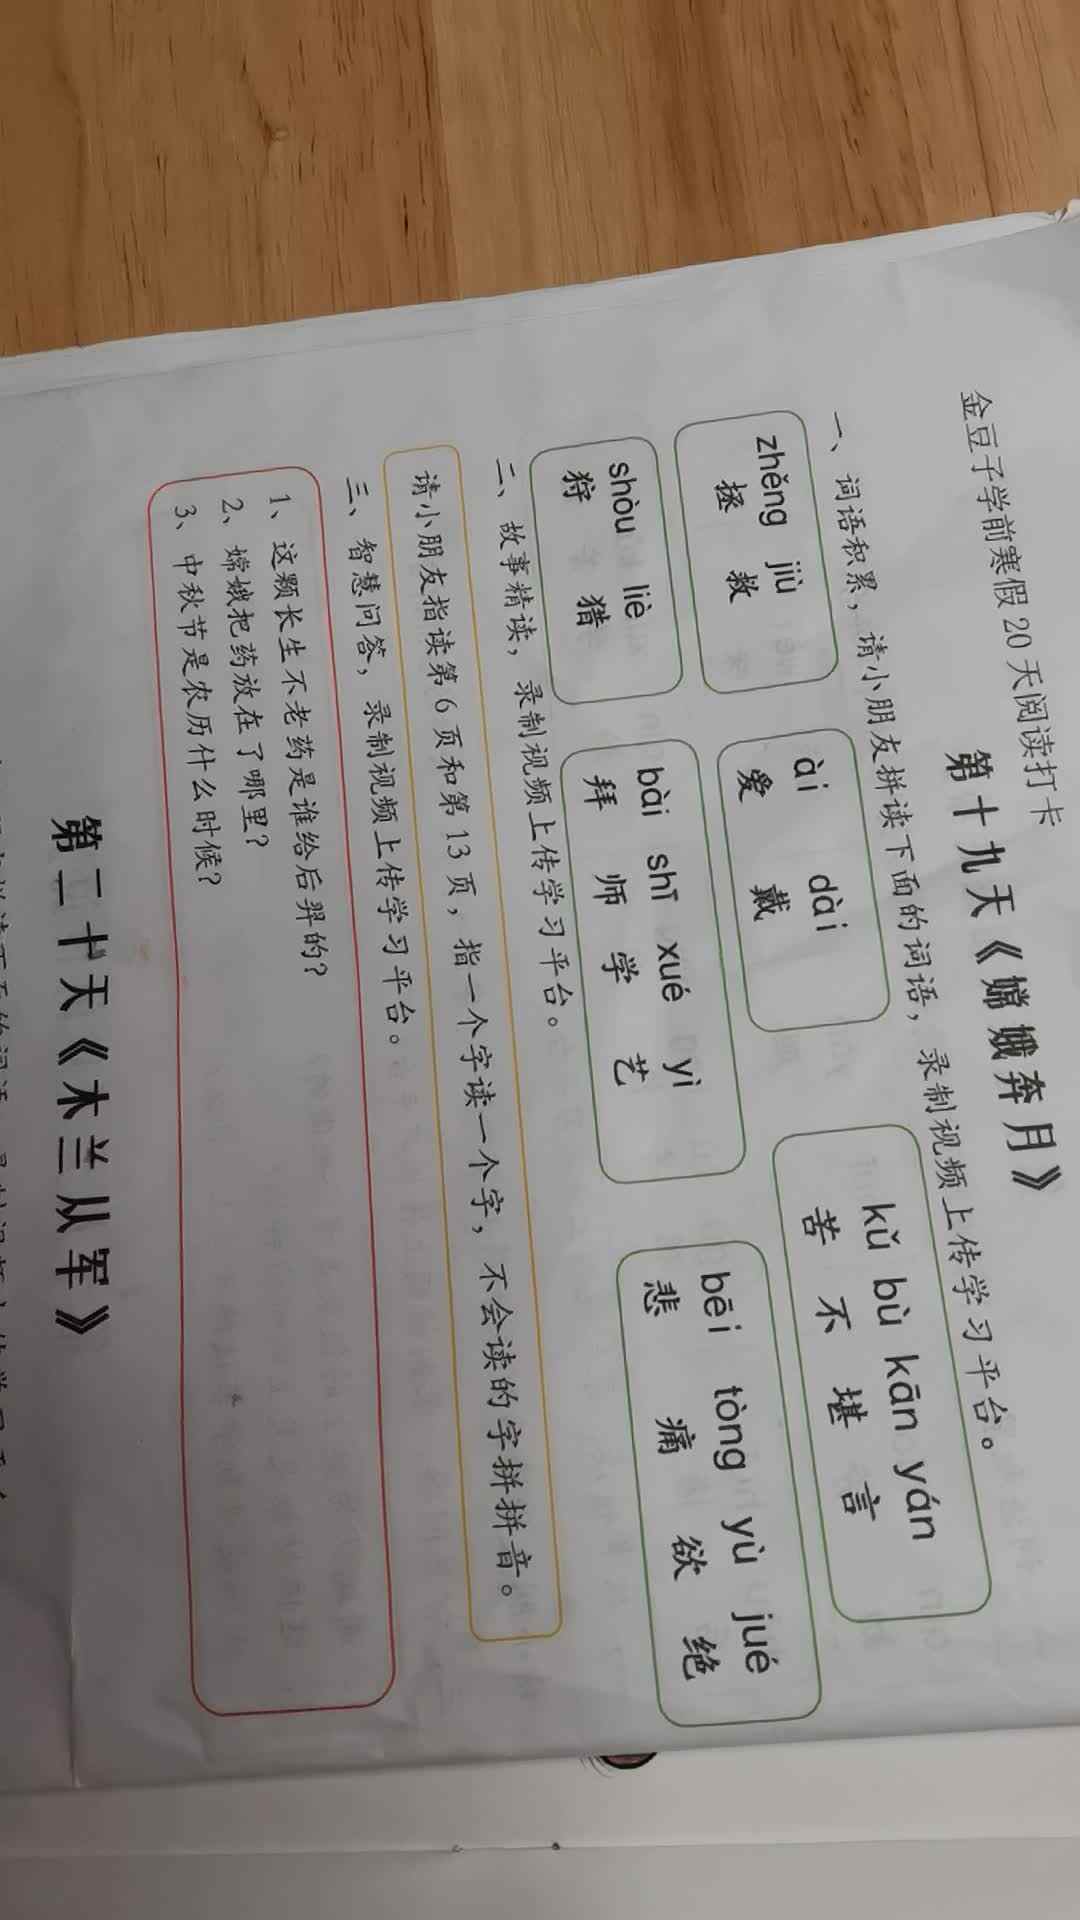 金豆子学前寒假20天阅读打卡
第十九天《嫦娥奔月》
一、词语积累，请小朋友拼读下面的词语，录制视频上传学习平台。
zhěng jiù ài dài kǔ bù kān yán
拯 救 爱 戴 苦 不 堪 言
shòu liè bài shī xué yì bēi tòng yù jué
狩 猎 拜 师 学 艺 悲 痛 欲 绝
二、故事精读，录制视频上传学习平台。
请小朋友指读第6页和第13页，指一个字读一个字，不会读的字拼拼音。
三、智慧问答，录制视频上传学习平台。
1、这颗长生不老药是谁给后羿的？
2、嫦娥把药放在了哪里？
3、中秋节是农历什么时候？
第二十天《木兰从军》